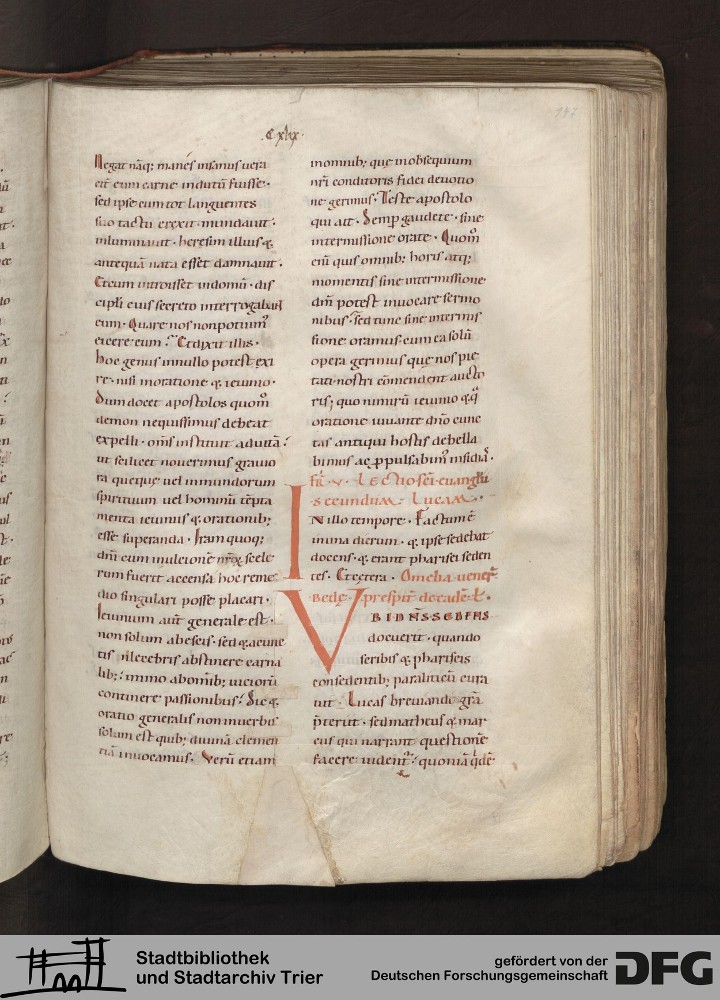 .C xlix.
147
Negat nāq; manes insanus uera
citˉ eum carne indutū fuisse.
sed ipse eum tot languentes
suo tactu erexit. mundauit.
inluminauit. heresim illius &
antequā nata esset damnauit.
Et cum introisset in domū. dis
cipli eius secreto interrogabant
eum. Quare nos non potuimˀ
eicere eum? Et dixit illis.
hoc genus in nullo potest exi
re. nisi in oratione & ieiunio.
Dum docet apostolos quom̄
demon nequissimus debeat
expelli. om̄s instituit ad uitā.
ut scilicet nouerimus grauio
ra queque uel inmundorum
spirituum uel hominū tēpta
menta ieiuniis & orationib;
esse superanda. Iram quoq;
dn̄i cum in ulcionē nr̄orū scele
rum fuerit accensa hoc reme
dio singulari posse placari.
Ieiunium autˉ generale est.
non solum ab escis. sed & a cunc
tis inlecebris abstinere carna
lib;. immo ab omīb; uiciorū
continere passionibus. Sic &
oratio generalis non in uerbis
solum est quib; diuinā clemen
tiā inuocamus. Verū etiam
in omnib; que in obsequium
nr̄i conditoris fidei deuotio
ne gerimus. Teste apostolo
qui ait. Semp̄ gaudete. sine
intermissione orate. Quom̄
enī quis omnib; horis atq;
momentis sine intermissione
dn̄m potest inuocare sermo
nibus. Sed tunc sine intermis
sione oramus. cum ea solū
opera gerimus que nos pie
tati nostri cōmendent aucto
ris; quo nimirū ieiunio &
oratione iuuante dn̄o cunc
tas antiqui hostis debella
bimus ac ꝓpulsabimˀ insidias.
fr̄. v. Lectio sc̄i euanglii
secundum Lucam.
IN illo tempore. Factum ē
in una dierum. & ipse sedebat
docens. & erant pharisei seden
tes. Et cetera. Omelia uener̄
Bede presbit̄i de eadē l.
VBI DN̄S SEDENS
docuerit. quando
scribis & phariseis
consedentib; paraliticū cura
uit. Lucas breuiando grā
p̄terut. sed matheus & mar
cus qui narrant questionē
facere uidentˀ. quoniā qͥdē
Stadtbibliothek
und Stadtarchiv Trier
gefördert von der
Deutschen Forschungsgemeinschaft
DFG